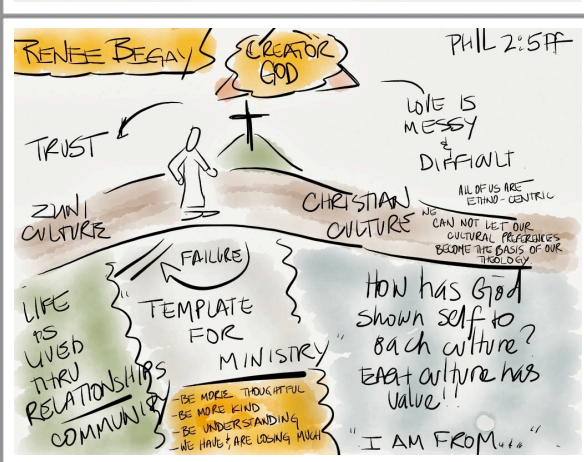 RENEE BEGAY
CREATOR
GOD
PHIL 2:5ff
TRUST
LOVE IS
MESSY
&
DIFFICULT
ALL OF US ARE
ETHNO-CENTRIC
WE
CAN NOT LET OUR
CULTURAL PREFERENCES
BECOME THE BASIS OF OUR
THEOLOGY
ZUNI
CULTURE
CHRISTIAN
CULTURE
FAILURE
LIFE
IS
LIVED
THRU
RELATIONSHIPS
COMMUNITY
"TEMPLATE
FOR
MINISTRY"
-BE MORE THOUGHTFUL
-BE MORE KIND
-BE UNDERSTANDING
-WE HAVE & ARE LOSING MUCH
HOW has God
shown self to
each culture?
EACH culture has
value!!
"I AM FROM...."